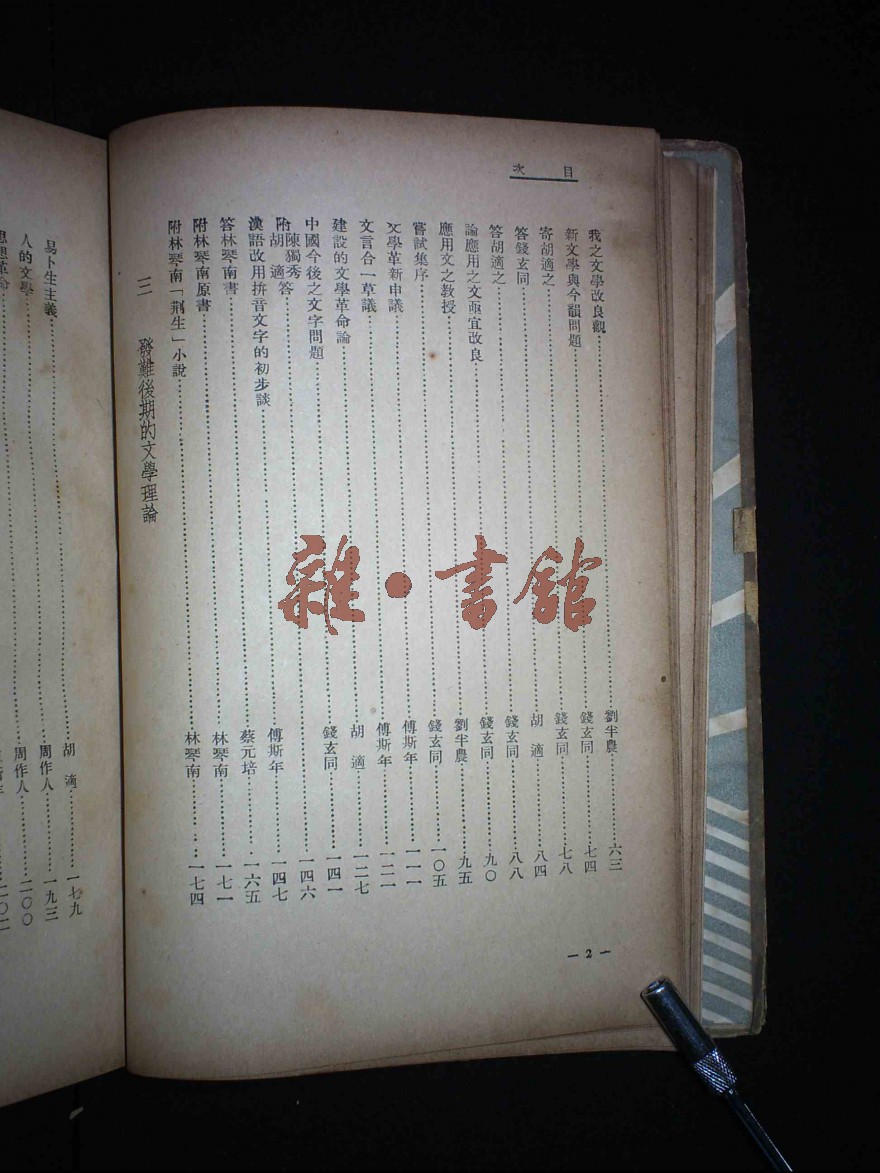 目次
我之文學改良觀……劉半農……六三
新文學與今韻問題……錢玄同……七四
寄胡適之……錢玄同……七八
答錢玄同……胡適……八四
答胡適之……錢玄同……八八
論應用之文亟宜改良……錢玄同……九〇
應用文之教授……劉半農……九五
嘗試集序……錢玄同……一〇五
文學革新申議……傅斯年……一一一
文言合一草議……傅斯年……一二一
建設的文學革命論……胡適……一二七
中國今後之文字問題……錢玄同……一四一
附陳獨秀胡適答……一四六
漢語改用拼音文字的初步談……傅斯年……一四七
答林琴南書……蔡元培……一六五
附林琴南原書……林琴南……一七一
附林琴南「荊生」小說……林琴南……一七四
三 發難後期的文學理論
— 2 —
易卜生主義……胡適……一七九
人的文學……周作人……一九三
思想革命……周作人……二〇〇
雜・書館